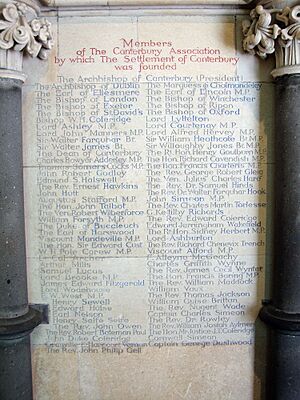 Members
of The Canterbury Association
by which The Settlement of Canterbury
was founded
The Archbishop of Canterbury (President)
The Archbishop of Dublin The Marquess of Cholmondeley
The Earl of Ellesmere The Earl of Lincoln M.P.
The Bishop of London The Bishop of Winchester
The Bishop of Exeter The Bishop of Ripon
The Bishop of St. David's The Bishop of Oxford
Bishop W. Coleridge Lord Lyttelton
Lord Ashley M.P. Lord Courtenay M.P.
Lord John Manners M.P. Lord Alfred Hervey M.P.
Sir Walter Farquhar Bt. Sir William Heathcote Bt. M.P.
Sir Walter James Bt. Sir Willoughby Jones Bt. M.P.
The Dean of Canterbury The Rt. Hon. Henry Goulburn M.P.
Charles Bowyer Adderley M.P. The Hon. Richard Cavendish M.P.
The Hon. Francis Charteris M.P.
John Robert Godley The Rev. George Robert Gleig
Edmund S. Halswell The Ven. Julius Charles Hare
The Rev. Ernest Hawkins The Rev. Dr. Samuel Hinds
John Hutt The Rev. Dr. Walter Farquhar Hook
Augustus Stafford M.P. John Simeon M.P.
The Hon. John Talbot The Rev. Charles Martin Torlesse
The Ven. Robert Wilberforce G. K. Rickards
William Forsyth The Rev. Edward Coleridge
The Duke of Buccleuch Edward Jerningham Wakefield
The Earl of Harewood The Rt. Hon. Sidney Herbert M.P.
Viscount Mandeville M.P. Lord Ashburton
The Hon. Sir Edward Cust The Rev. Richard Chenevix Trench
W. H. Pole Carew M.P. Viscount Alford M.P.
Arthur Mills Charles Griffith Wynne
Samuel Lucas The Rev. Jacob Cecil Wynter
The Hon. Francis Baring M.P.
James Edward FitzGerald The Rev. William Maddock
Lord Wodehouse William Vaux
F. W. West M.P. The Rev. Thomas Jackson
Henry Sewell William Guise Brittan
Edward Hulse The Rev. Nugent Wade
Earl Nelson Captain Charles Simeon
Henry Selfe Selfe The Rev. Dr. Rowley
The Rev. John Owen The Rev. William Josiah Aylmer
The Rev. Robert Bateman Paul The Hon. Mr. Justice J.T. Coleridge
John Duke Coleridge Cornwall Simeon
Granville Harcourt Vernon Captain George Dashwood
The Rev. John Philip Gell